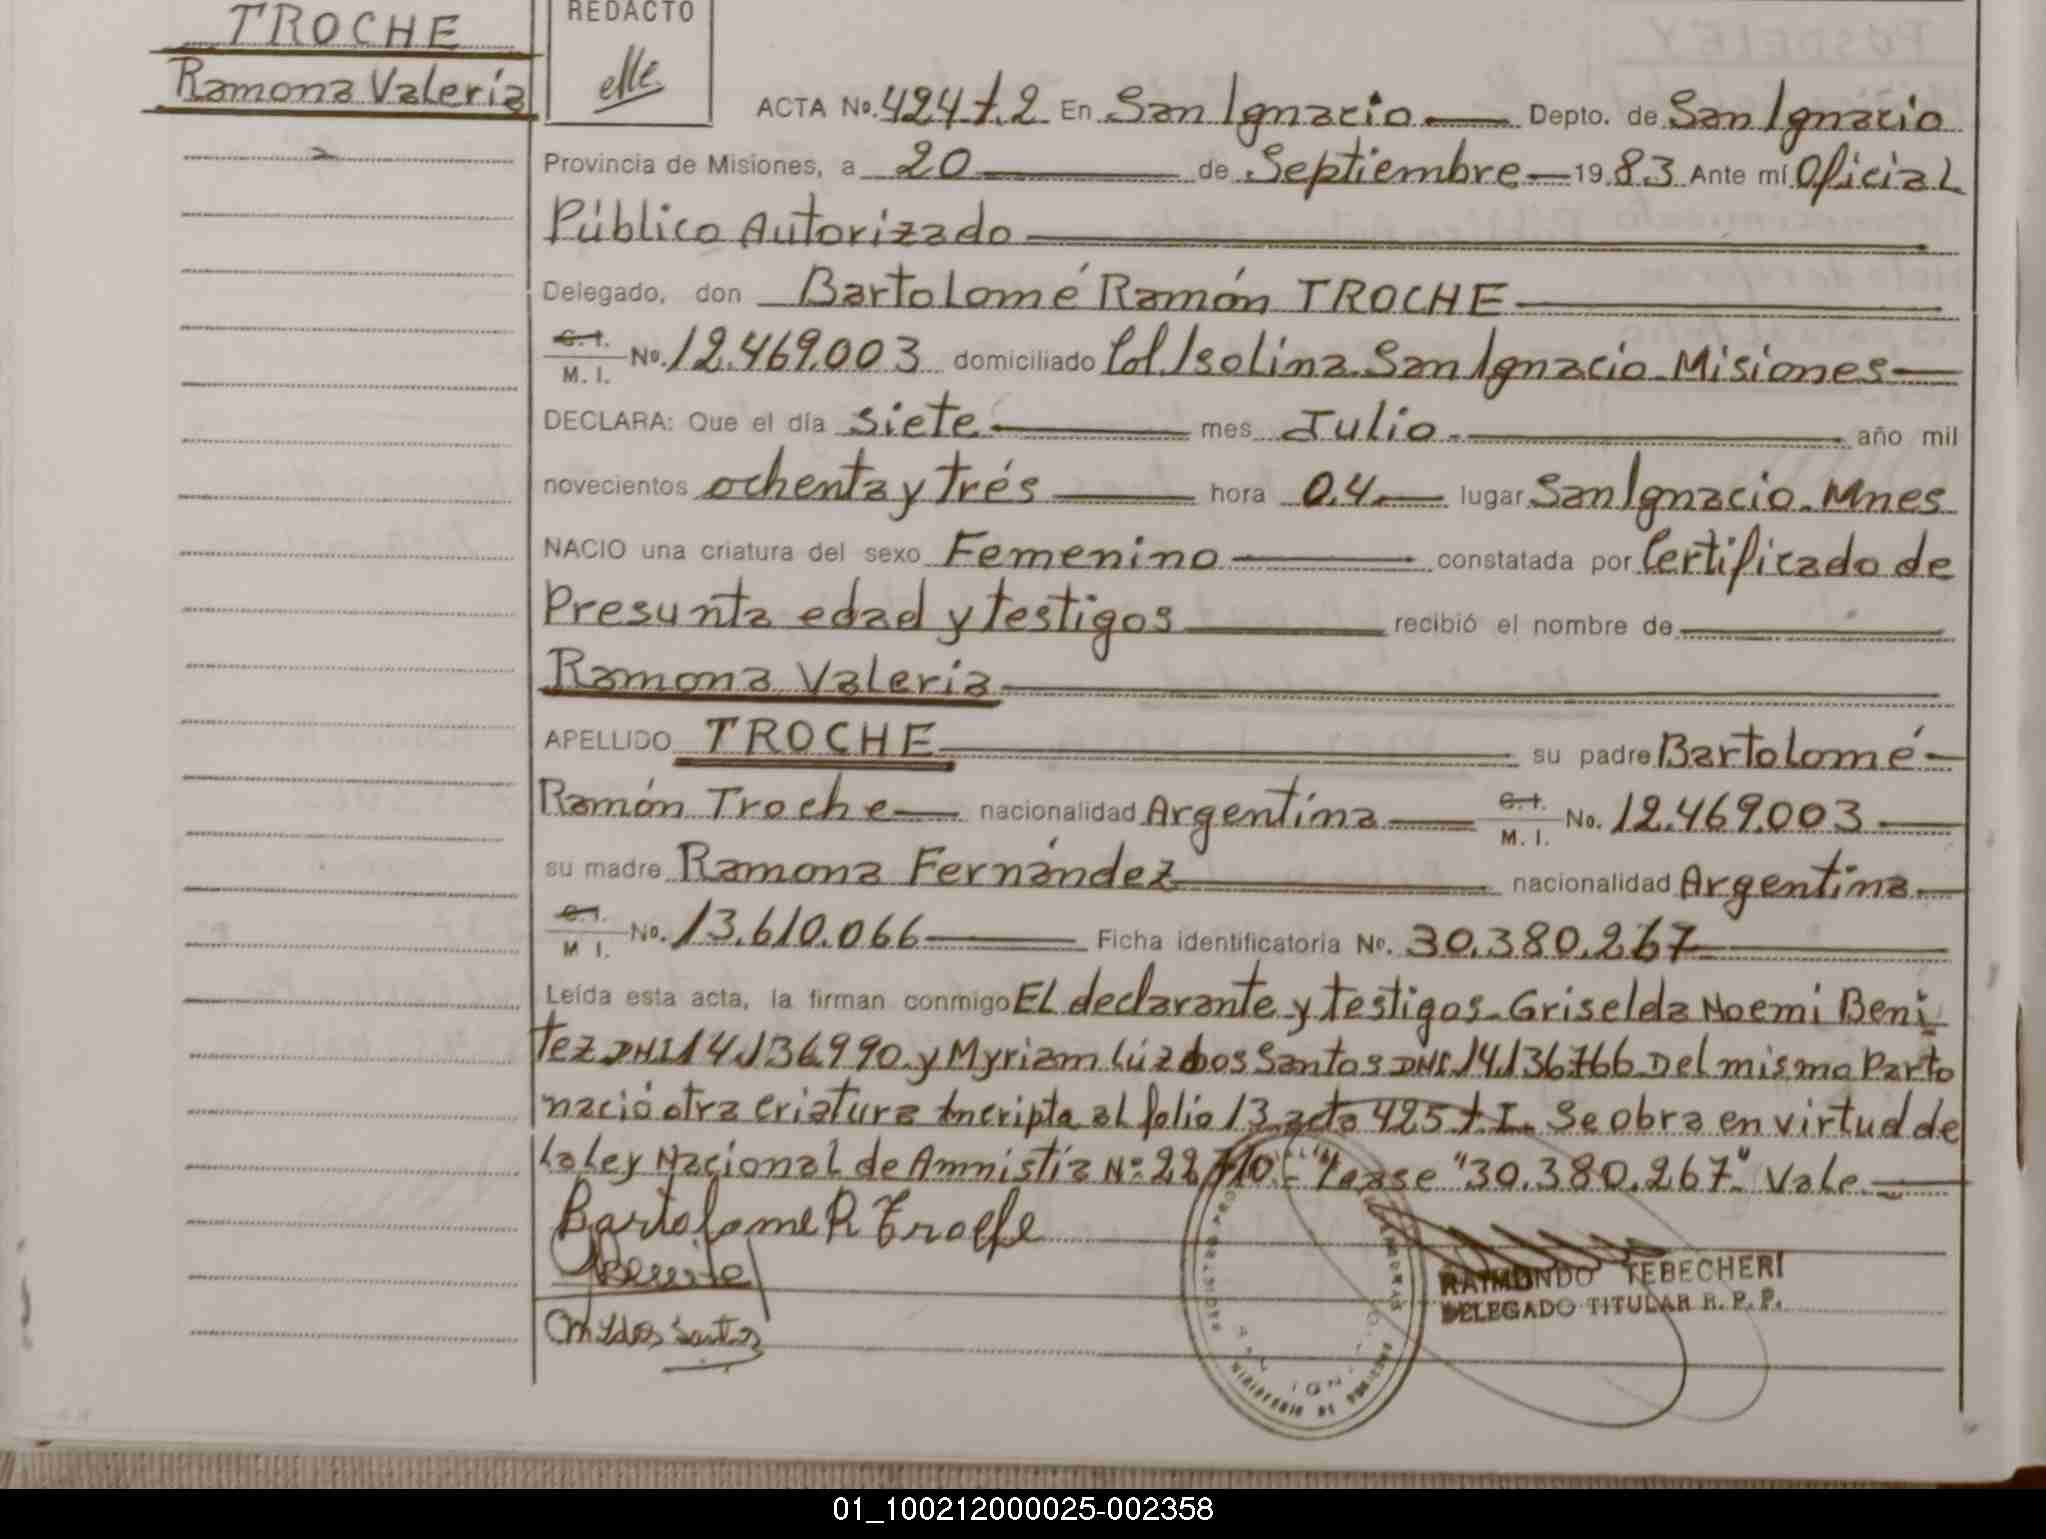 TROCHE
Ramona Valeria
REDACTO
ACTA No. 424 t. 2 En San Ignacio Depto. de San Ignacio
Provincia de Misiones, a 20 de Septiembre 19 83 Ante mí Oficial
Público Autorizado
Delegado, don Bartolomé Ramón TROCHE
C. I. / M. I. No. 12.469.003 domiciliado Col. Isolina San Ignacio Misiones
DECLARA: Que el día siete mes Julio año mil
novecientos ochenta y trés hora 04 lugar San Ignacio. Mnes
NACIO una criatura del sexo Femenino constatada por Certificado de
Presunta edad y testigos recibió el nombre de
Ramona Valeria
APELLIDO TROCHE su padre Bartolomé
Ramón Troche nacionalidad Argentina C. I. / M. I. No. 12.469.003
su madre Ramona Fernández nacionalidad Argentina
C. I. / M. I. No. 13.610.066 Ficha identificatoria No. 30.380.267
Leída esta acta, la firman conmigo EL declarante y testigos Griselda Noemi Beni
tez DNI 14.136.990 y Myriam Lúz dos Santos DNI. 14.136766 Del mismo Parto
nació otra criatura Incripta al folio 13 acta 425 t I. Se obra en virtud de
la ley Nacional de Amnistía Nº 22 710 "Lease "30.380.267" Vale
Bartolome R Troche
Benitez
M L dos Santos
RAIMUNDO TEBECHERI
DELEGADO TITULAR R. P. P.
01_100212000025-002358